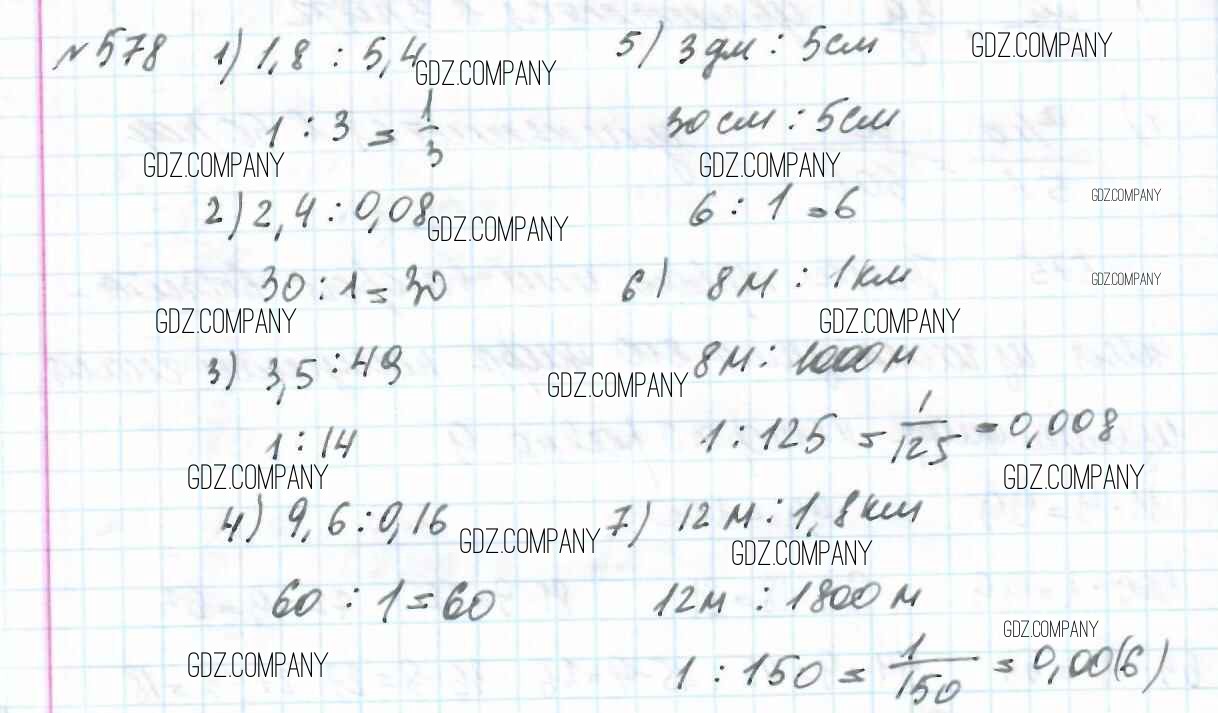 №578 1) 1,8 : 5,4
GDZ.COMPANY
1 : 3 = 1/3
GDZ.COMPANY
2) 2,4 : 0,08
GDZ.COMPANY
30 : 1 = 30
GDZ.COMPANY
3) 3,5 : 49
GDZ.COMPANY
1 : 14
GDZ.COMPANY
4) 9,6 : 0,16
GDZ.COMPANY
60 : 1 = 60
GDZ.COMPANY
5) 3 дм : 5см
GDZ.COMPANY
30 см : 5см
GDZ.COMPANY
6 : 1 = 6
GDZ.COMPANY
6) 8 м : 1 км
GDZ.COMPANY
GDZ.COMPANY
8 м : 1000 м
1 : 125 = 1/125 = 0,008
GDZ.COMPANY
7) 12 м : 1,8 км
GDZ.COMPANY
12м : 1800 м
GDZ.COMPANY
1 : 150 = 1/150 = 0,00(6)